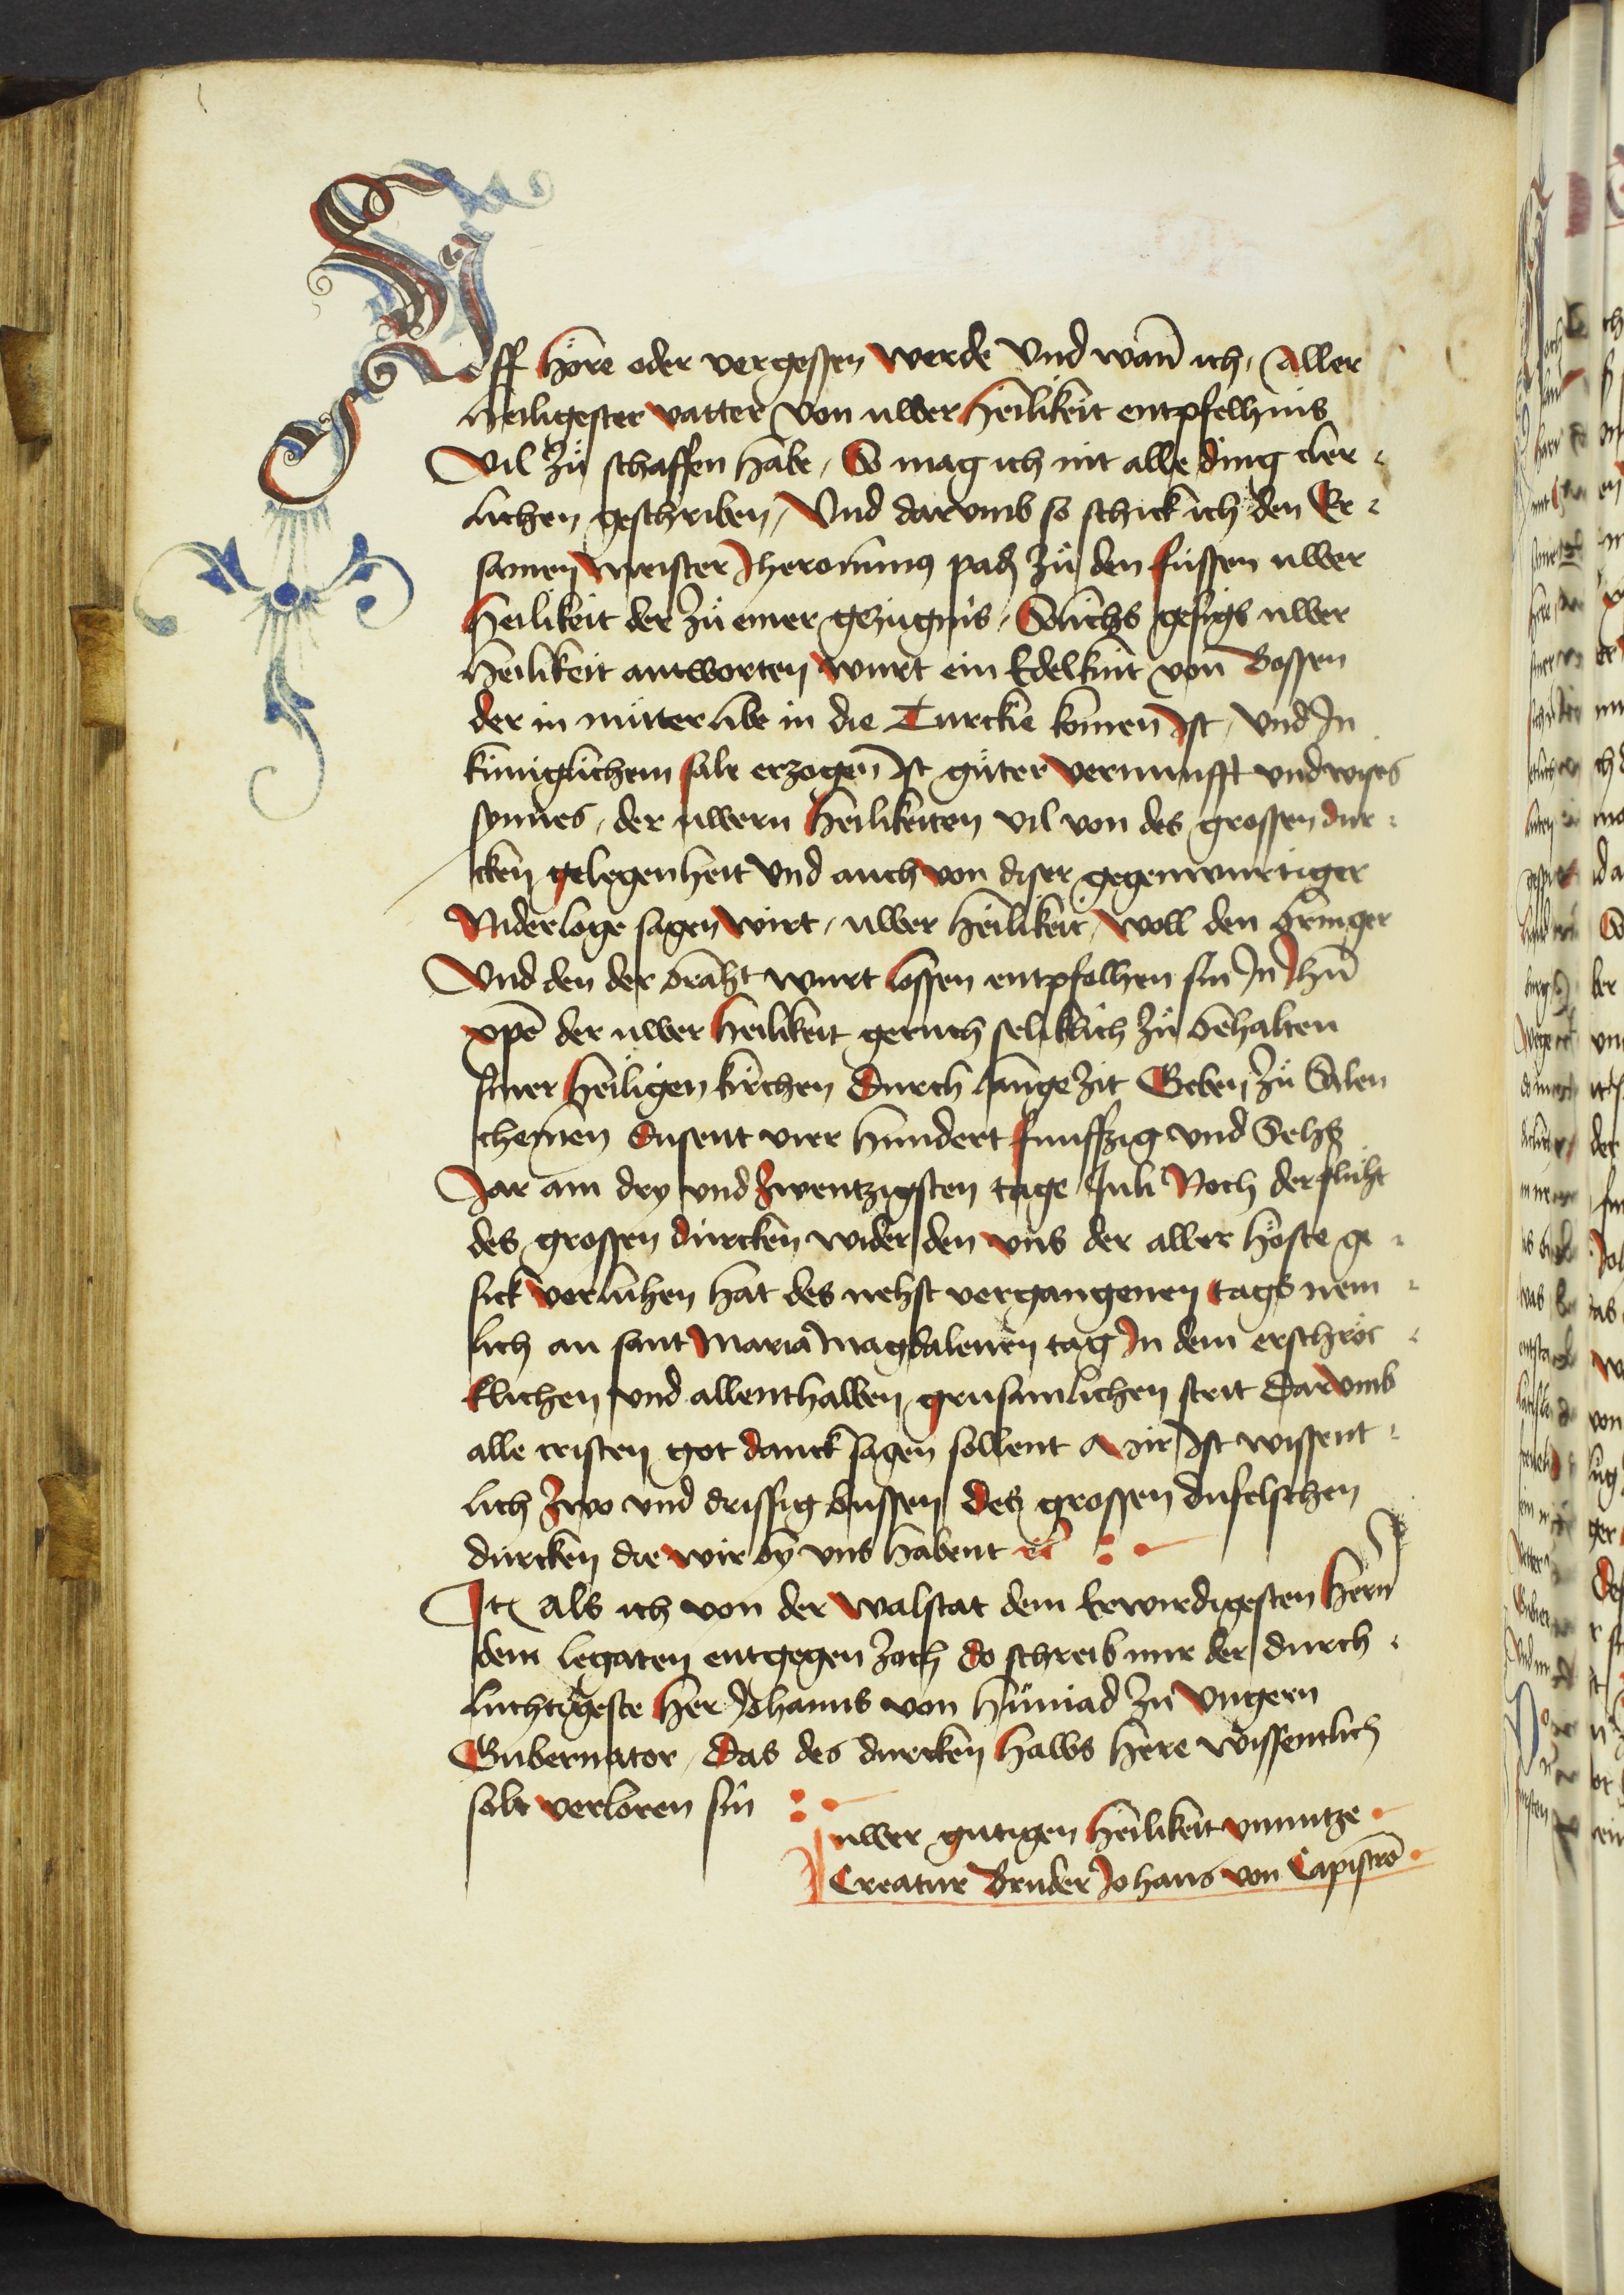 Uff höre oder vergessen werde Und wan̄ ich, Aller
heiligester vatter von uwer heilikeit entpfelhnis
Vil zů schaffen habe, So mag ich nit alle ding cler-
lichen geschriben, Und darumb so schick ich den Er-
samen meister Jheronimus padz zů den füssen uwer
heilikeit der zů einer gezügnis, Sölichs gesigs uwer
heilikeit antworten wurt ein Edelknit von Bossen
der in mütter libe in die Turckie komen Ist, Und In
küniglichem sale erzogen Ist güter vernunfft und wises
synnes, der uwern heilikeiten vil von des grossen dur-
cken gelegenheit Und auch von diser gegenwurtiger
Niderloge sagen wirt, uwer heilikeit, woll den bringer
Und den der bracht wurt lossen entpfolhen sin In Jhū
xp̄o der uwer heilikeit geruch seliklich zů behalten
siner heiligen kirchen Durch lange zit Geben zů Salen
chemen dusent vier hundert funffzig und Sehs
Jar am dry und zwentzigsten tage Juli Noch der flucht
des grossen dürcken wider den uns der aller höste ge-
sick verluhen hat des nehst vergangenen tags nem-
lich an sant Maria Magdalenen tag In dem erschröc-
klichen und allenthalben grusamlichen strit Darumb
alle cristen got danck sagen sollent Mir Ist wissent-
lich zwo und drissig bussen des grossen dufelschen
dürcken die wir by uns habent ⁊c̄
Itē Als ich von der walstat dem Erwirdigesten hern̄
dem legaten entgegen zoch do schreib mir der durch-
luchtigeste her Johanns von Huniad zů Ungern
Gubernator, Das des durcken halbs here wissentlich
solt verloren sin
uwer gütigen heilikeit unnutze
Creatur Bruder Johans von Capistrō